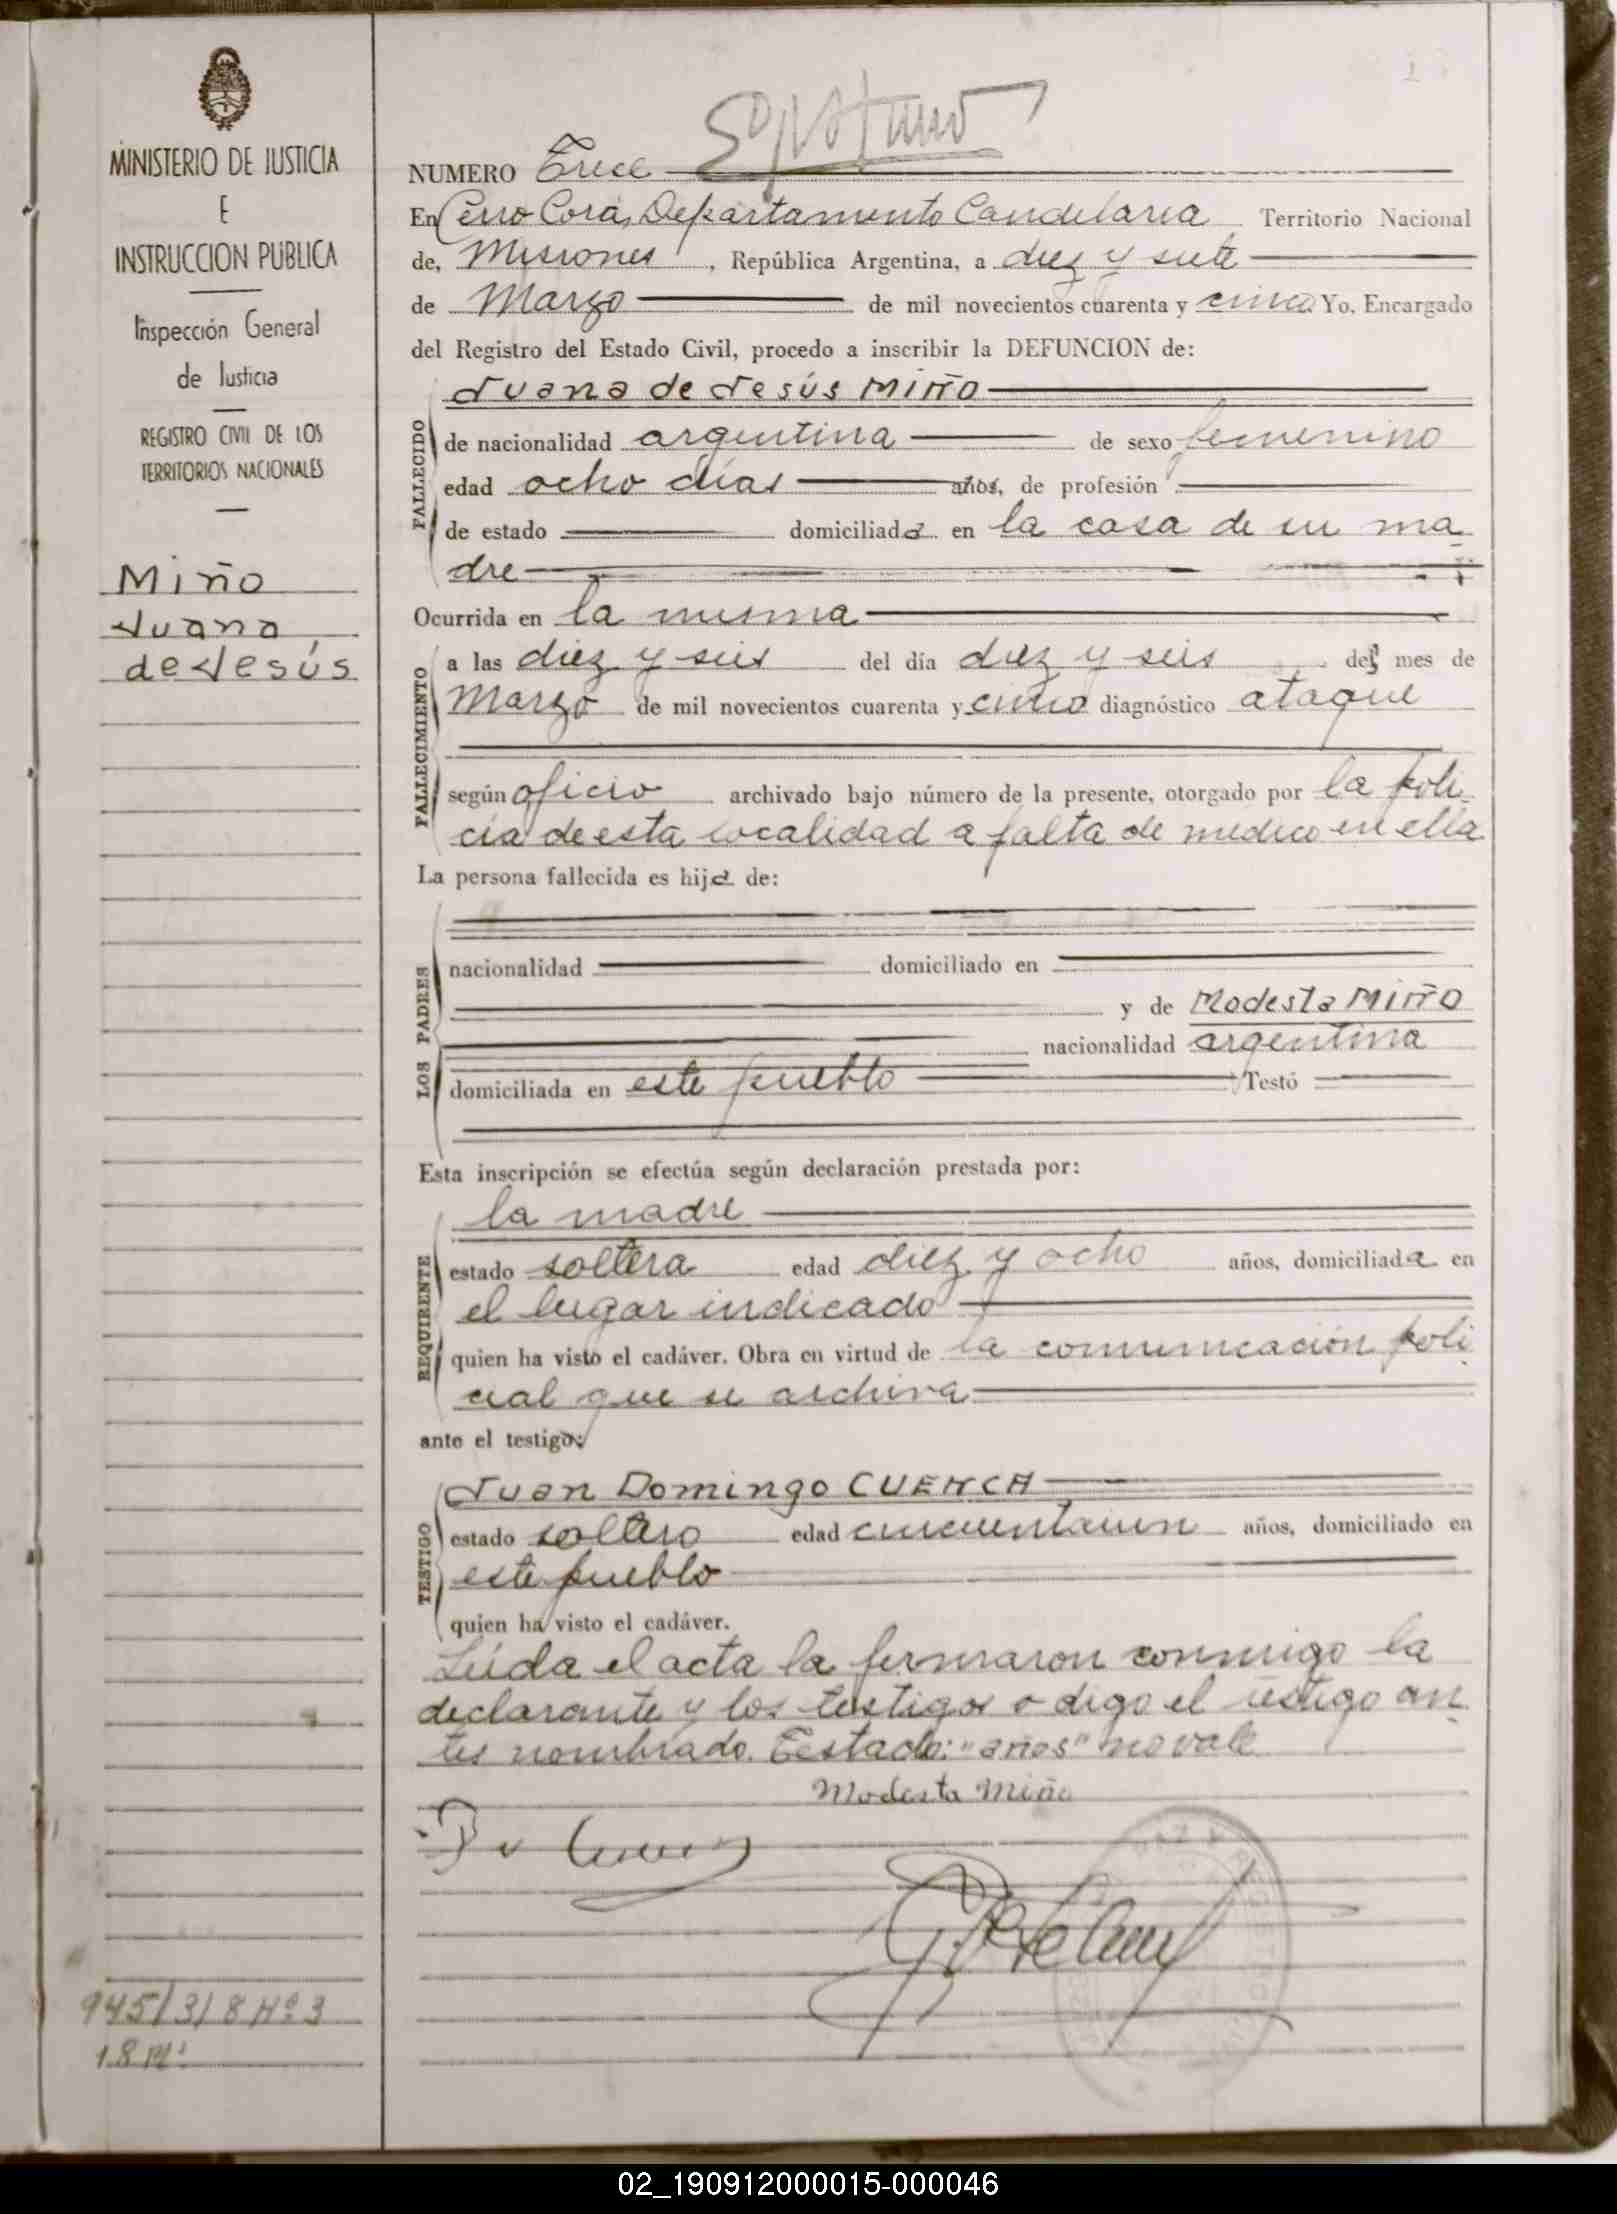 MINISTERIO DE JUSTICIA
E
INSTRUCCION PUBLICA
Inspección General
de Justicia
REGISTRO CIVIL DE LOS
TERRITORIOS NACIONALES
Miño
Juana
de Jesús
945/3/8 Nº 3
NUMERO Trece
En Cerro Corá, Departamento Candelaria, Territorio Nacional
de, Misiones, República Argentina, a diez y siete
de Marzo de mil novecientos cuarenta y cinco Yo, Encargado
del Registro del Estado Civil, procedo a inscribir la DEFUNCION de:
FALLECIDO
Juana de Jesús MIÑO
de nacionalidad argentina de sexo femenino
edad ocho días años, de profesión
de estado domiciliada en la casa de su ma-
dre
Ocurrida en la misma
FALLECIMIENTO
a las diez y seis del día diez y seis del mes de
Marzo de mil novecientos cuarenta y cinco diagnóstico ataque
según oficio archivado bajo número de la presente, otorgado por la poli-
cía de esta localidad a falta de medico en ella
La persona fallecida es hija de:
LOS PADRES
nacionalidad domiciliado en
y de Modesta MIÑO
nacionalidad argentina
domiciliada en este pueblo Testó
Esta inscripción se efectúa según declaración prestada por:
REQUIRENTE
la madre
estado soltera edad diez y ocho años, domiciliada en
el lugar indicado
quien ha visto el cadáver. Obra en virtud de la comunicación poli-
cial que se archiva
ante el testigo:
TESTIGO
Juan Domingo CUENCA
estado soltero edad cincuentaiun años, domiciliado en
este pueblo
quien ha visto el cadáver.
Leída el acta la firmaron conmigo la
declarante y los testigos o digo el testigo an-
tes nombrado. Testado: "años" no vale
Modesta Miño
02_190912000015-000046